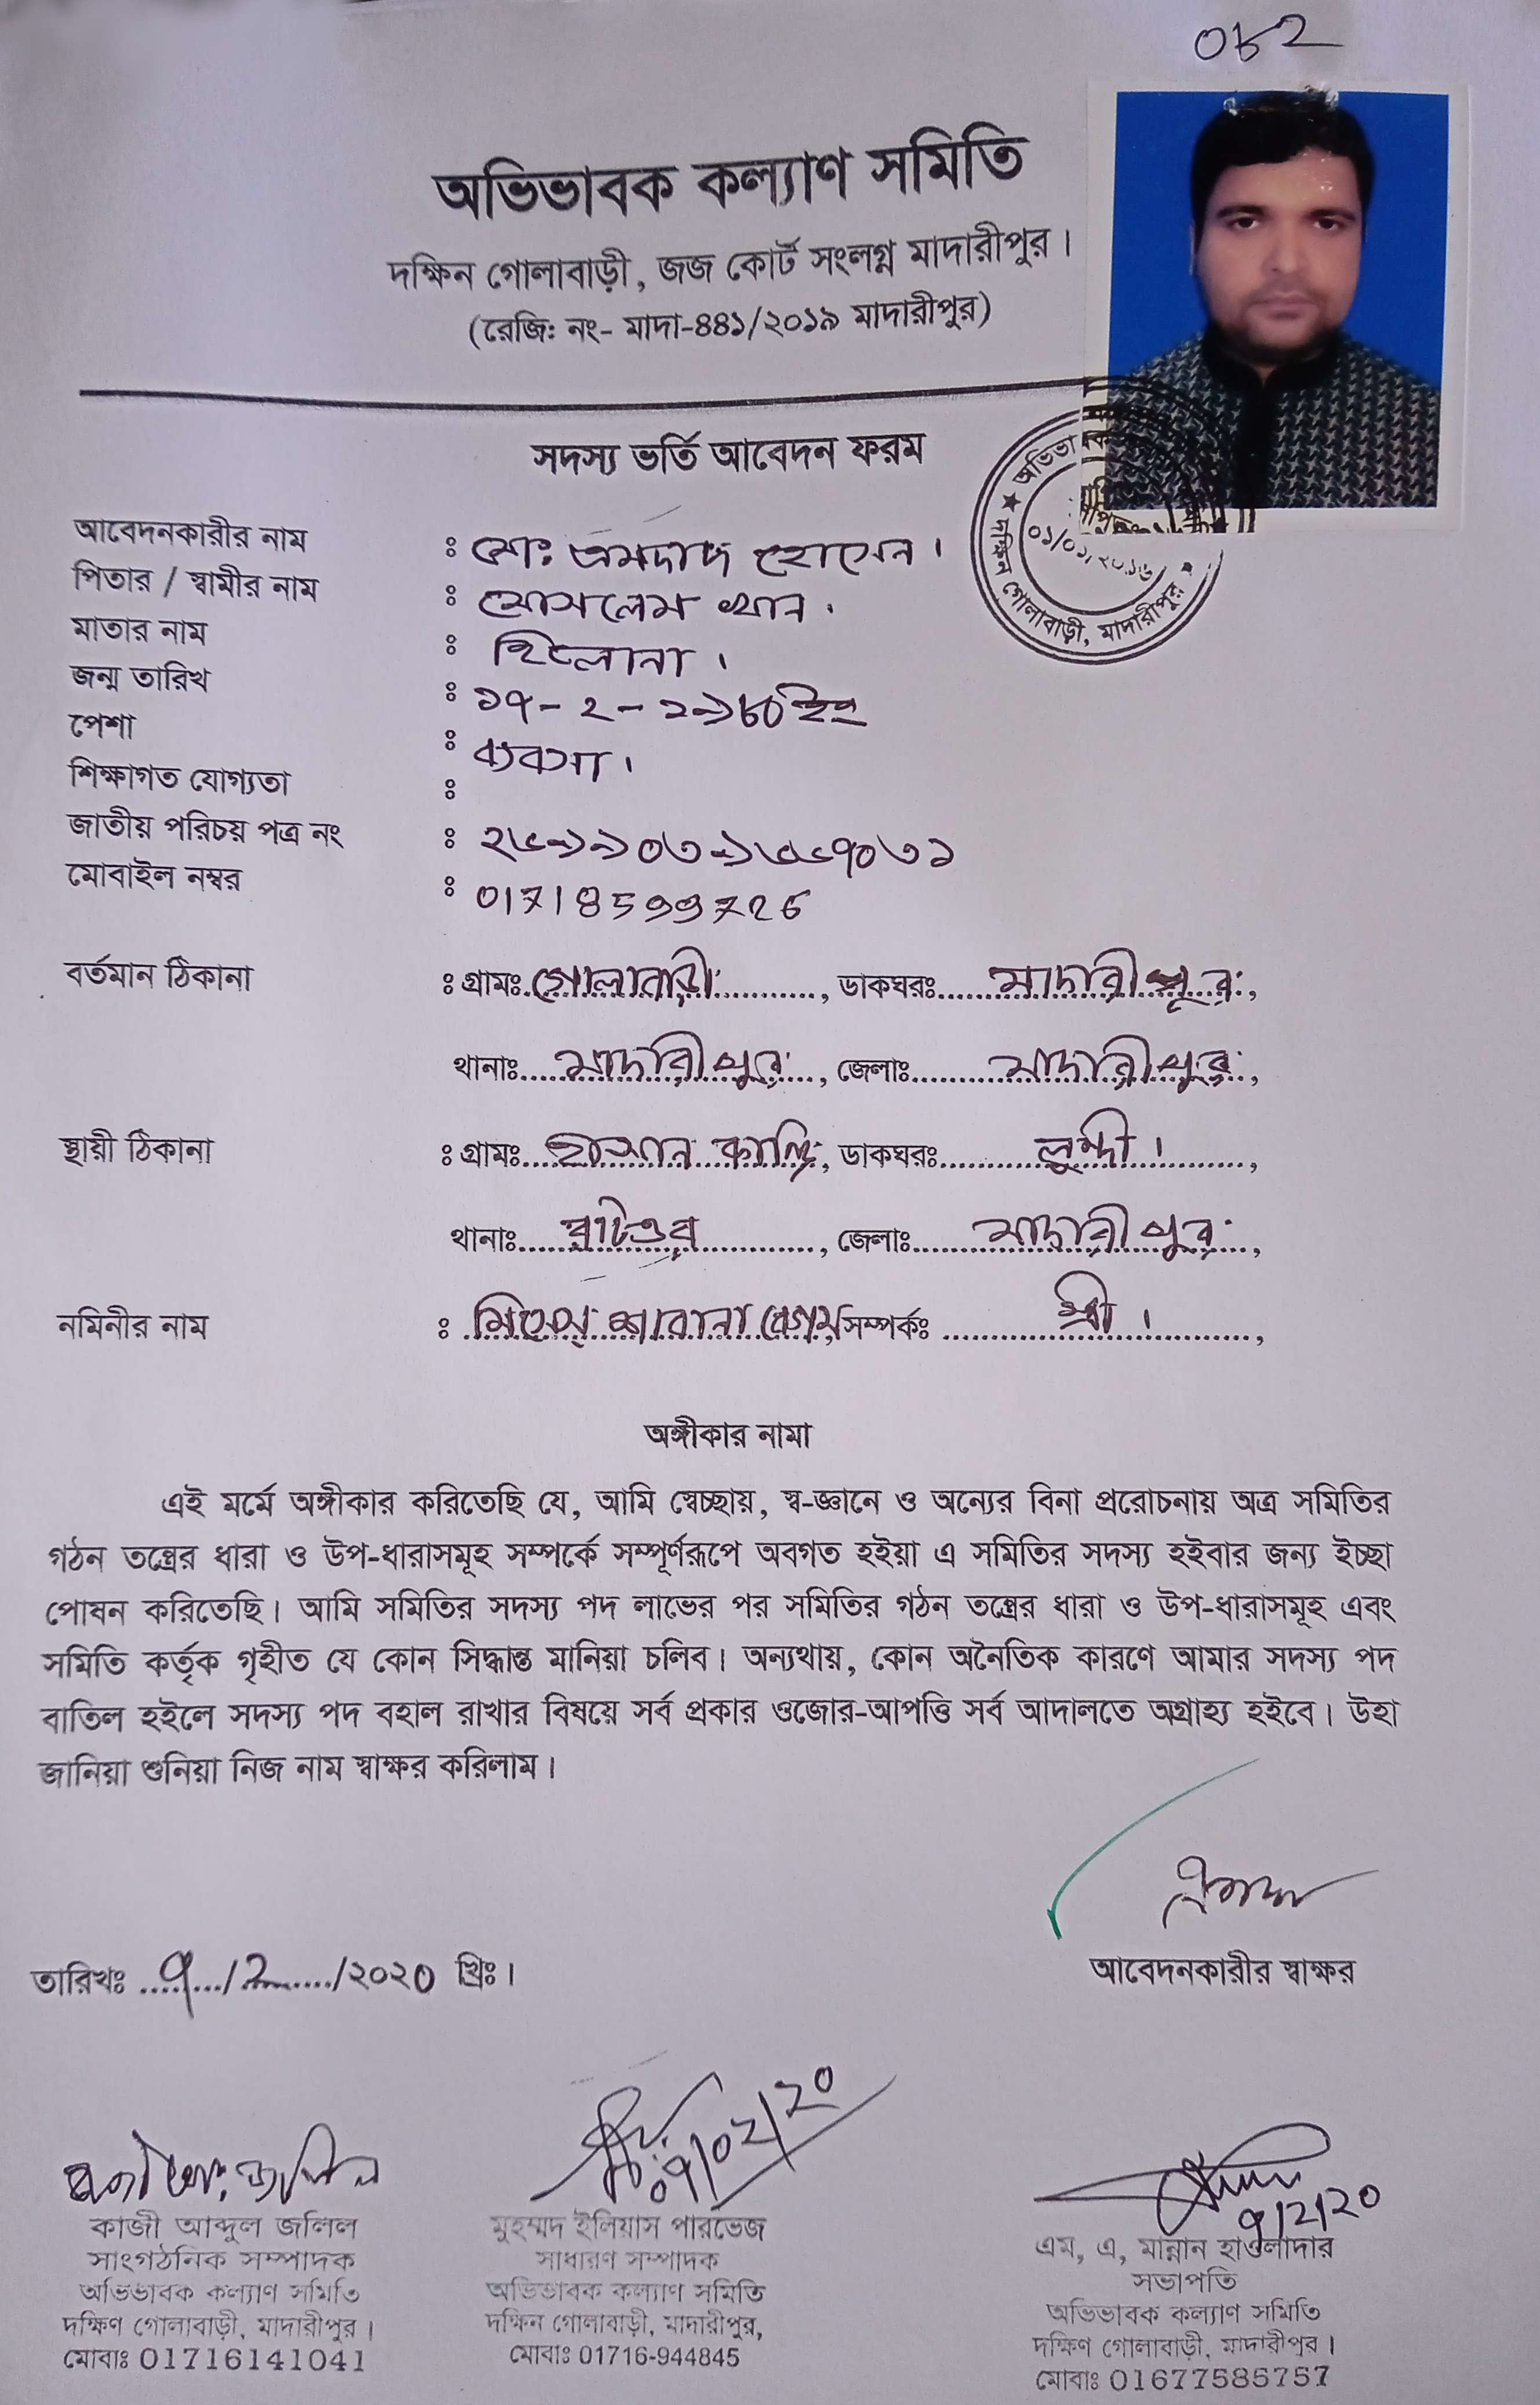 ০৮২
অভিভাবক কল্যাণ সমিতি
দক্ষিন গোলাবাড়ী, জজ কোর্ট সংলগ্ন মাদারীপুর।
(রেজি: নং- মাদা-৪৪১/২০১৯ মাদারীপুর)
সদস্য ভর্তি আবেদন ফরম
অভিভাবক
০১/০১/২০১৬
দক্ষিন গোলাবাড়ী, মাদারীপুর
আবেদনকারীর নাম : মোঃ এমদাদ হোসেন।
পিতার / স্বামীর নাম : মোসলেম খান।
মাতার নাম :
জন্ম তারিখ : ১৭-২-১৯৮০ইং
পেশা : ব্যবসা।
শিক্ষাগত যোগ্যতা :
জাতীয় পরিচয় পত্র নং :
মোবাইল নম্বর : 01718599726
বর্তমান ঠিকানা : গ্রামঃ গোলাবাড়ী, ডাকঘরঃ মাদারীপুর,
থানাঃ মাদারীপুর, জেলাঃ মাদারীপুর,
স্থায়ী ঠিকানা : গ্রামঃ হাসান কান্দি, ডাকঘরঃ লুন্দী।,
থানাঃ রাজৈর, জেলাঃ মাদারীপুর,
নমিনীর নাম : মিসেস্ শাবানা বেগম সম্পর্কঃ স্ত্রী।,
অঙ্গীকার নামা
এই মর্মে অঙ্গীকার করিতেছি যে, আমি স্বেচ্ছায়, স্ব-জ্ঞানে ও অন্যের বিনা প্ররোচনায় অত্র সমিতির
গঠন তন্ত্রের ধারা ও উপ-ধারাসমূহ সম্পর্কে সম্পূর্ণরূপে অবগত হইয়া এ সমিতির সদস্য হইবার জন্য ইচ্ছা
পোষন করিতেছি। আমি সমিতির সদস্য পদ লাভের পর সমিতির গঠন তন্ত্রের ধারা ও উপ-ধারাসমূহ এবং
সমিতি কর্তৃক গৃহীত যে কোন সিদ্ধান্ত মানিয়া চলিব। অন্যথায়, কোন অনৈতিক কারণে আমার সদস্য পদ
বাতিল হইলে সদস্য পদ বহাল রাখার বিষয়ে সর্ব প্রকার ওজোর-আপত্তি সর্ব আদালতে অগ্রাহ্য হইবে। উহা
জানিয়া শুনিয়া নিজ নাম স্বাক্ষর করিলাম।
এমদাদ
তারিখঃ ৭/২/২০২০ খ্রিঃ।
আবেদনকারীর স্বাক্ষর
কাজী আঃ জলিল
০৭/০২/২০
৭/2/20
কাজী আব্দুল জলিল
সাংগঠনিক সম্পাদক
অভিভাবক কল্যাণ সমিতি
দক্ষিণ গোলাবাড়ী, মাদারীপুর।
মোবাঃ 01716141041
মুহম্মদ ইলিয়াস পারভেজ
সাধারণ সম্পাদক
অভিভাবক কল্যাণ সমিতি
দক্ষিন গোলাবাড়ী, মাদারীপুর,
মোবাঃ 01716-944845
এম, এ, মান্নান হাওলাদার
সভাপতি
অভিভাবক কল্যাণ সমিতি
দক্ষিণ গোলাবাড়ী, মাদারীপুর।
মোবাঃ 01677585757